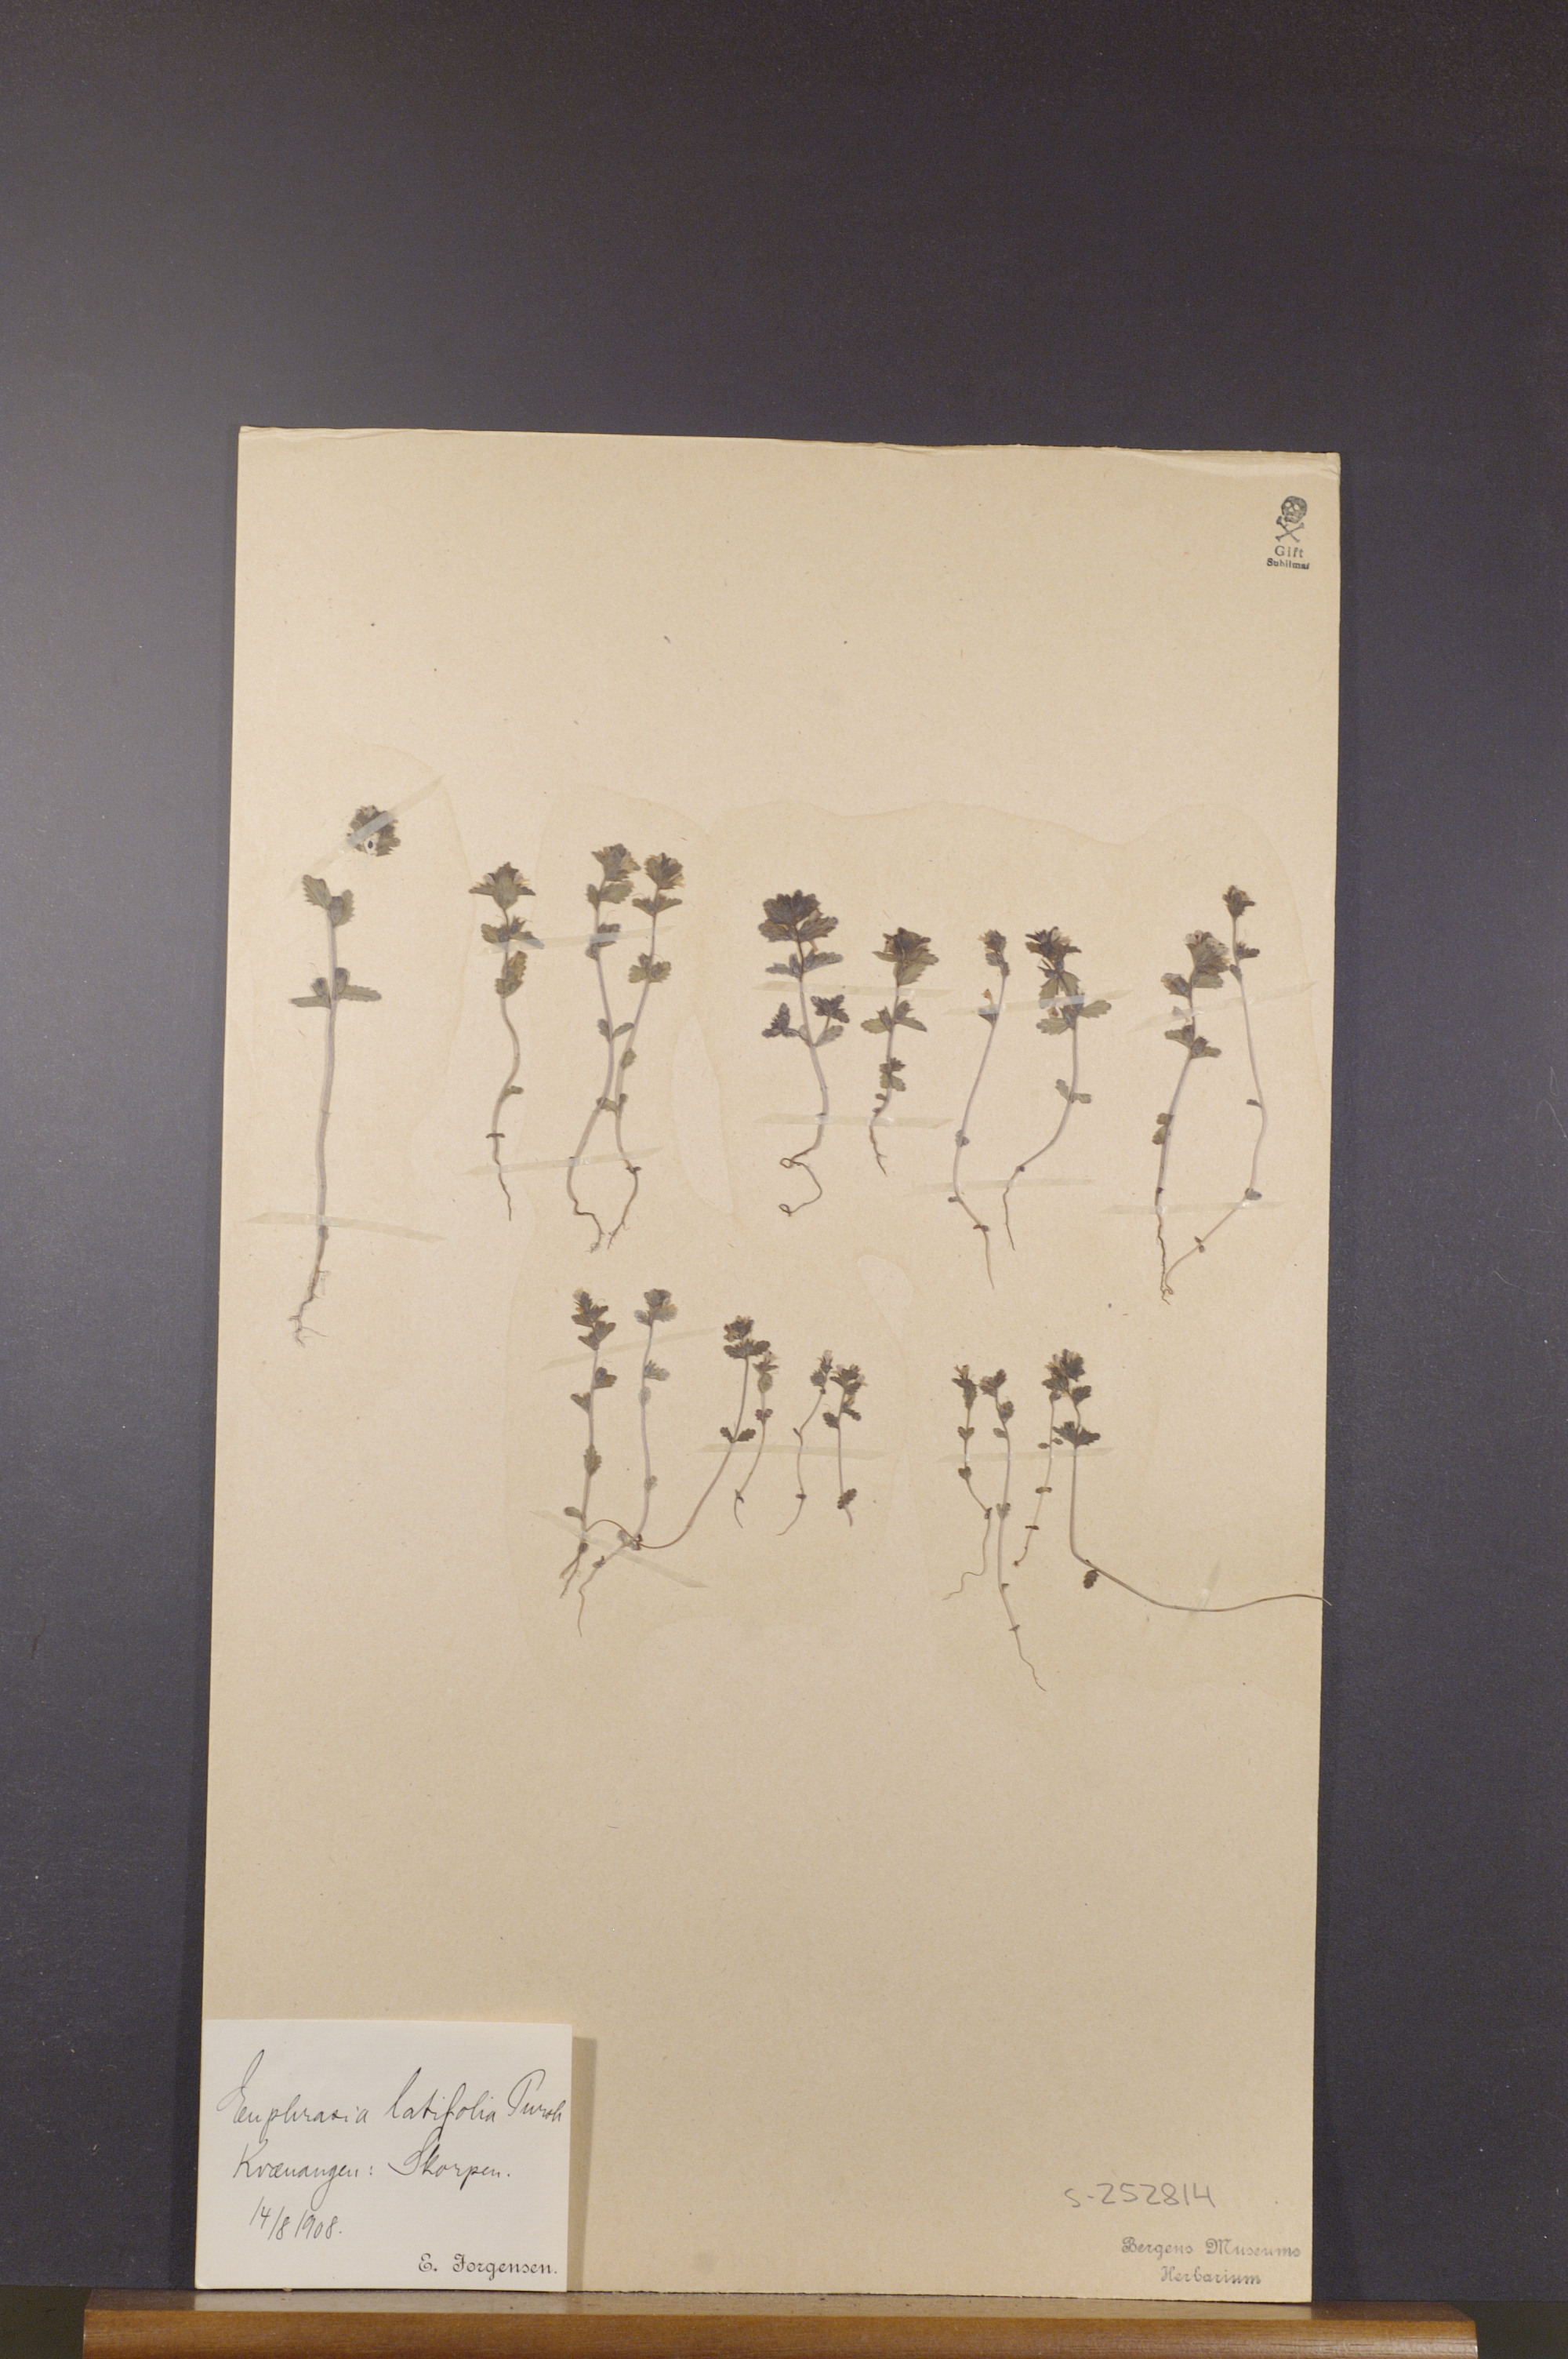 Gift
Sublimat
Euphrasia latifolia Pursh
Kvænangen: Skorpen.
14/8 1908.
E. Jørgensen.
S-252814
Bergens Museums
Herbarium